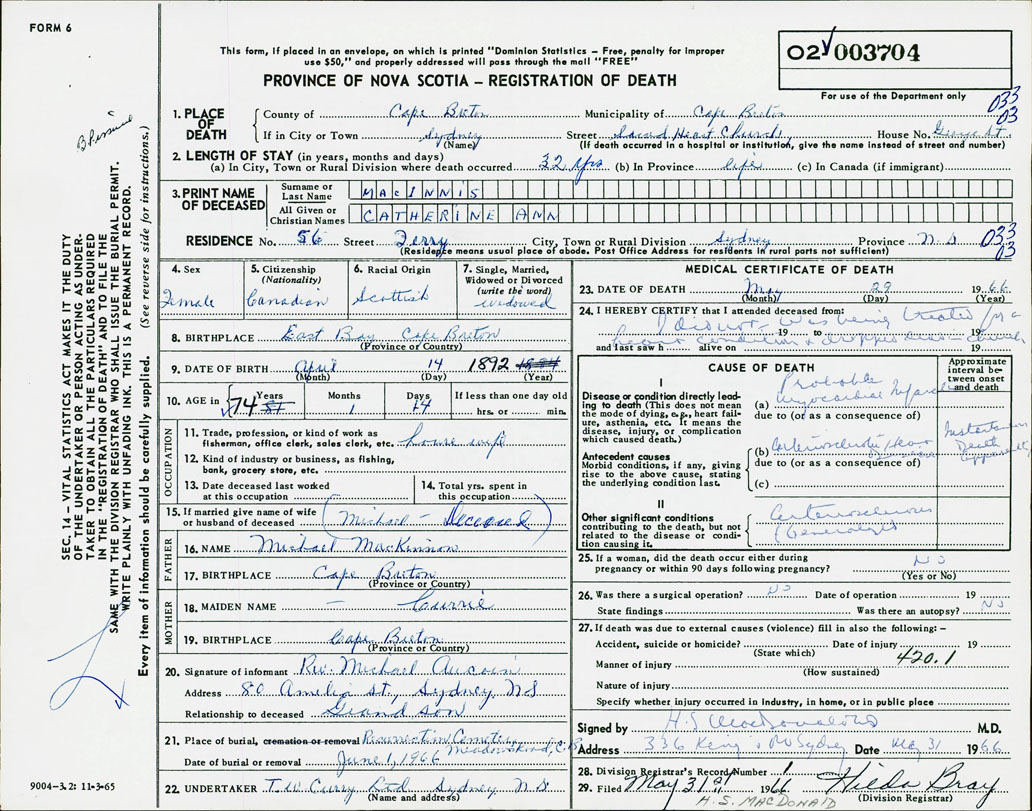 FORM 6
This form, if placed in an envelope, on which is printed "Dominion Statistics – Free, penalty for improper
use $50," and properly addressed will pass through the mail "FREE"
PROVINCE OF NOVA SCOTIA – REGISTRATION OF DEATH
02 003704
For use of the Department only
033
03
1. PLACE OF DEATH
County of Cape Breton Municipality of Cape Breton
If in City or Town Sydney Street Sacred Heart Church, House No. George St.
(Name) (If death occurred in a hospital or institution, give the name instead of street and number)
2. LENGTH OF STAY (in years, months and days)
(a) In City, Town or Rural Division where death occurred 32 yrs (b) In Province life (c) In Canada (if immigrant)
3. PRINT NAME OF DECEASED
Surname or Last Name MACINNIS
All Given or Christian Names CATHERINE ANN
RESIDENCE No. 56 Street Ferry City, Town or Rural Division Sydney Province N S
033
03
(Residence means usual place of abode. Post Office Address for residents in rural parts not sufficient)
4. Sex Female
5. Citizenship (Nationality) Canadian
6. Racial Origin Scottish
7. Single, Married, Widowed or Divorced (write the word) widowed
8. BIRTHPLACE East Bay Cape Breton
(Province or Country)
9. DATE OF BIRTH April 14 1892
(Month) (Day) (Year)
10. AGE in Years 74 Months 1 Days 14 If less than one day old hrs. or min.
OCCUPATION
11. Trade, profession, or kind of work as
fisherman, office clerk, sales clerk, etc. house wife
12. Kind of industry or business, as fishing,
bank, grocery store, etc.
13. Date deceased last worked
at this occupation
14. Total yrs. spent in
this occupation
15. If married give name of wife
or husband of deceased (Michael – Deceased)
FATHER
16. NAME Michael MacKinnon
17. BIRTHPLACE Cape Breton
(Province or Country)
MOTHER
18. MAIDEN NAME – Currie
19. BIRTHPLACE Cape Breton
(Province or Country)
20. Signature of informant Rev. Michael Aucoin
Address 80 Amelia St., Sydney, N S
Relationship to deceased Grand son
21. Place of burial, cremation or removal Resurrection Cemetery
Date of burial or removal June 1, 1966
22. UNDERTAKER T. W. Curry Ltd Sydney N. S.
(Name and address)
MEDICAL CERTIFICATE OF DEATH
23. DATE OF DEATH May 29 1966
(Month) (Day) (Year)
24. I HEREBY CERTIFY that I attended deceased from:
I did not – Was being treated for a
19 to 19
heart condition & dropped dead in church
and last saw h alive on 19
CAUSE OF DEATH
Approximate interval between onset and death
I
Disease or condition directly leading to death (This does not mean the mode of dying, e.g., heart failure, asthenia, etc. It means the disease, injury, or complication which caused death.)
(a) Probable Myocardial Infarct
due to (or as a consequence of)
Antecedent causes
Morbid conditions, if any, giving rise to the above cause, stating the underlying condition last.
(b) Arteriosclerotic Heart Disease
Death
due to (or as a consequence of)
(c)
II
Other significant conditions contributing to the death, but not related to the disease or condition causing it.
Arteriosclerosis
(Generalized
25. If a woman, did the death occur either during
pregnancy or within 90 days following pregnancy? NO
(Yes or No)
26. Was there a surgical operation? NO Date of operation 19
State findings Was there an autopsy? NO
27. If death was due to external causes (violence) fill in also the following: –
Accident, suicide or homicide? Date of injury 19
(State which)
420.1
Manner of injury
(How sustained)
Nature of injury
Specify whether injury occurred in Industry, in home, or in public place
Signed by H.S. MacDonald M.D.
Address 336 King's Rd Sydney Date May 31 1966
28. Division Registrar's Record Number 1
29. Filed May 31 1966 Hilda Bray
(Division Registrar)
H. S. MACDONALD
SEC. 14 – VITAL STATISTICS ACT MAKES IT THE DUTY
OF THE UNDERTAKER OR PERSON ACTING AS UNDER-
TAKER TO OBTAIN ALL THE PARTICULARS REQUIRED
IN THE "REGISTRATION OF DEATH" AND TO FILE THE
SAME WITH THE DIVISION REGISTRAR WHO SHALL ISSUE THE BURIAL PERMIT.
WRITE PLAINLY WITH UNFADING INK. THIS IS A PERMANENT RECORD.
Every item of information should be carefully supplied. (See reverse side for instructions.)
9004-3.2: 11-3-65